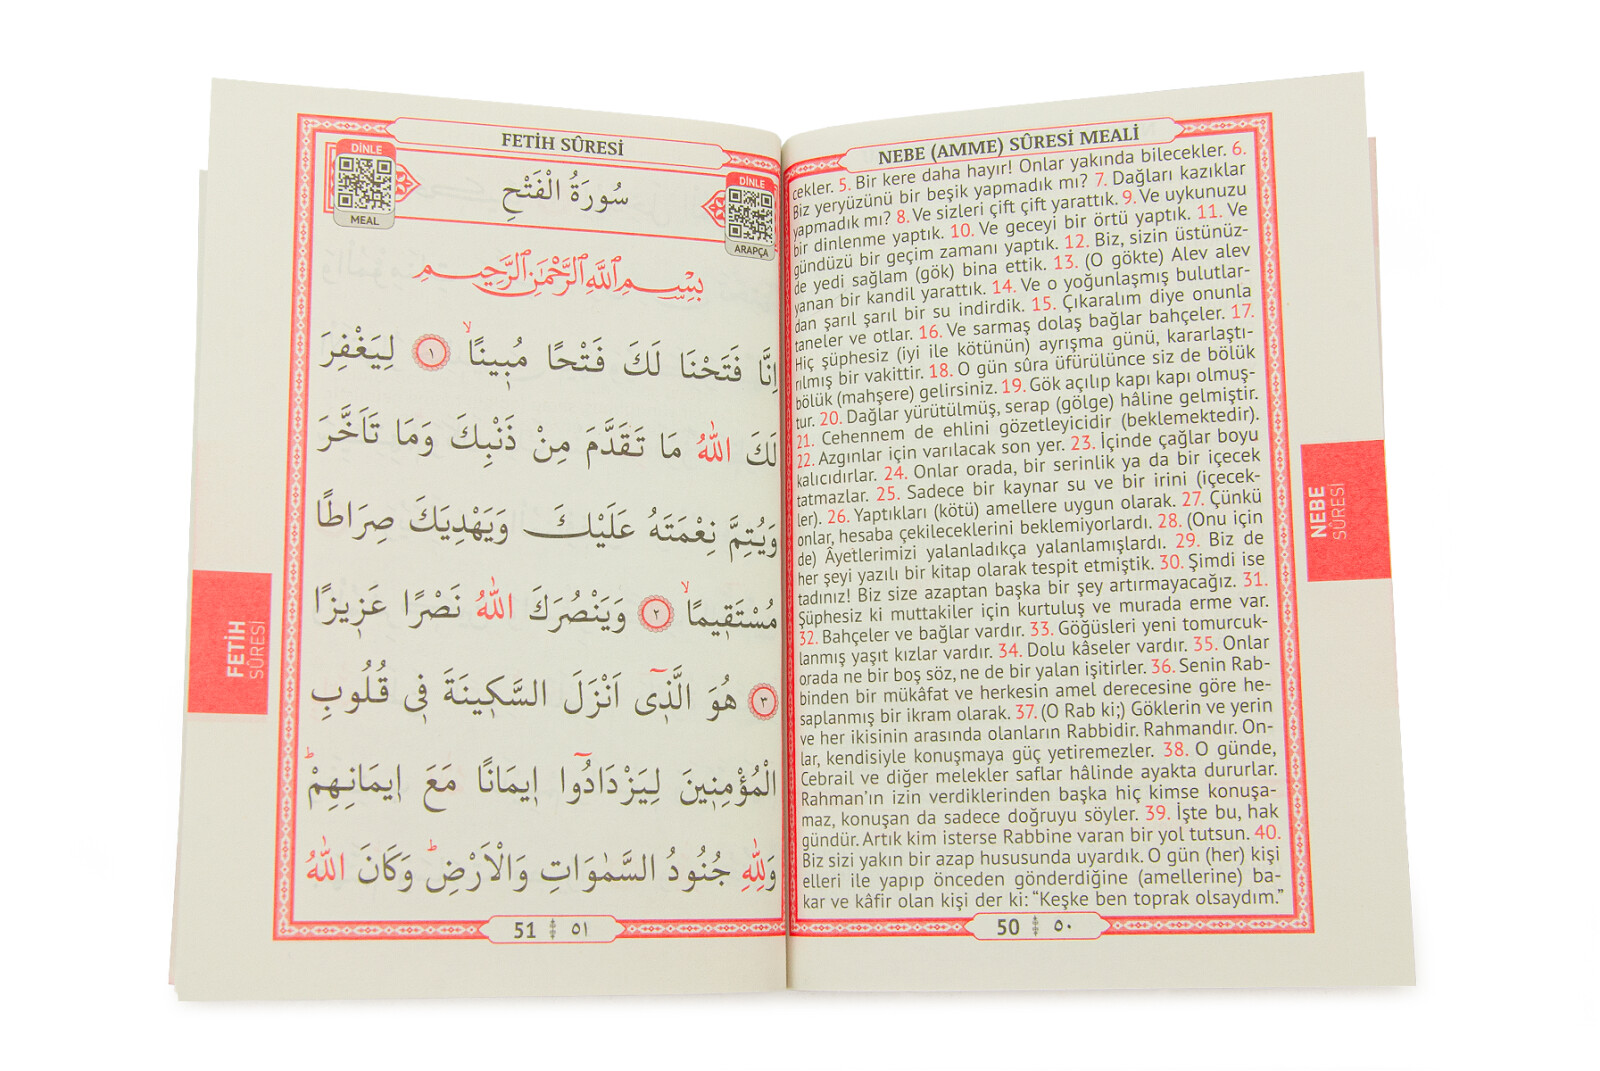 NEBE (AMME) SÛRESİ MEALİ
cekler. 5. Bir kere daha hayır! Onlar yakında bilecekler. 6.
Biz yeryüzünü bir beşik yapmadık mı? 7. Dağları kazıklar
yapmadık mı? 8. Ve sizleri çift çift yarattık. 9. Ve uykunuzu
bir dinlenme yaptık. 10. Ve geceyi bir örtü yaptık. 11. Ve
gündüzü bir geçim zamanı yaptık. 12. Biz, sizin üstünüz-
de yedi sağlam (gök) bina ettik. 13. (O gökte) Alev alev
yanan bir kandil yarattık. 14. Ve o yoğunlaşmış bulutlar-
dan şarıl şarıl bir su indirdik. 15. Çıkaralım diye onunla
taneler ve otlar. 16. Ve sarmaş dolaş bağlar bahçeler. 17.
Hiç şüphesiz (iyi ile kötünün) ayrışma günü, kararlaştı-
rılmış bir vakittir. 18. O gün sûra üfürülünce siz de bölük
bölük (mahşere) gelirsiniz. 19. Gök açılıp kapı kapı olmuş-
tur. 20. Dağlar yürütülmüş, serap (gölge) hâline gelmiştir.
21. Cehennem de ehlini gözetleyicidir (beklemektedir).
22. Azgınlar için varılacak son yer. 23. İçinde çağlar boyu
kalıcıdırlar. 24. Onlar orada, bir serinlik ya da bir içecek
tatmazlar. 25. Sadece bir kaynar su ve bir irini (içecek-
ler). 26. Yaptıkları (kötü) amellere uygun olarak. 27. Çünkü
onlar, hesaba çekileceklerini beklemiyorlardı. 28. (Onu için
de) Âyetlerimizi yalanladıkça yalanlamışlardı. 29. Biz de
her şeyi yazılı bir kitap olarak tespit etmiştik. 30. Şimdi ise
tadınız! Biz size azaptan başka bir şey artırmayacağız. 31.
Şüphesiz ki muttakiler için kurtuluş ve murada erme var.
32. Bahçeler ve bağlar vardır. 33. Göğüsleri yeni tomurcuk-
lanmış yaşıt kızlar vardır. 34. Dolu kâseler vardır. 35. Onlar
orada ne bir boş söz, ne de bir yalan işitirler. 36. Senin Rab-
binden bir mükâfat ve herkesin amel derecesine göre he-
saplanmış bir ikram olarak. 37. (O Rab ki;) Göklerin ve yerin
ve her ikisinin arasında olanların Rabbidir. Rahmandır. On-
lar, kendisiyle konuşmaya güç yetiremezler. 38. O günde,
Cebrail ve diğer melekler saflar hâlinde ayakta dururlar.
Rahman'ın izin verdiklerinden başka hiç kimse konuşa-
maz, konuşan da sadece doğruyu söyler. 39. İşte bu, hak
gündür. Artık kim isterse Rabbine varan bir yol tutsun. 40.
Biz sizi yakın bir azap hususunda uyardık. O gün (her) kişi
elleri ile yapıp önceden gönderdiğine (amellerine) ba-
kar ve kâfir olan kişi der ki: “Keşke ben toprak olsaydım.”
50 ٥٠
NEBE
SÛRESİ
FETİH SÛRESİ
DİNLE
MEAL
سُورَةُ الْفَتْحِ
DİNLE
ARAPÇA
بِسْمِ اللّٰهِ الرَّحْمٰنِ الرَّحِيمِ
اِنَّا فَتَحْنَا لَكَ فَتْحًا مُب۪ينًاۙ ١ لِيَغْفِرَ
لَكَ اللّٰهُ مَا تَقَدَّمَ مِنْ ذَنْبِكَ وَمَا تَاَخَّرَ
وَيُتِمَّ نِعْمَتَهُ عَلَيْكَ وَيَهْدِيَكَ صِرَاطًا
مُسْتَق۪يمًاۙ ٢ وَيَنْصُرَكَ اللّٰهُ نَصْرًا عَز۪يزًا
٣ هُوَ الَّذ۪ٓي اَنْزَلَ السَّك۪ينَةَ ف۪ي قُلُوبِ
الْمُؤْمِن۪ينَ لِيَزْدَادُٓوا ا۪يمَانًا مَعَ ا۪يمَانِهِمْۜ
وَلِلّٰهِ جُنُودُ السَّمٰوَاتِ وَالْاَرْضِۜ وَكَانَ اللّٰهُ
51 ٥١
FETİH
SÛRESİ